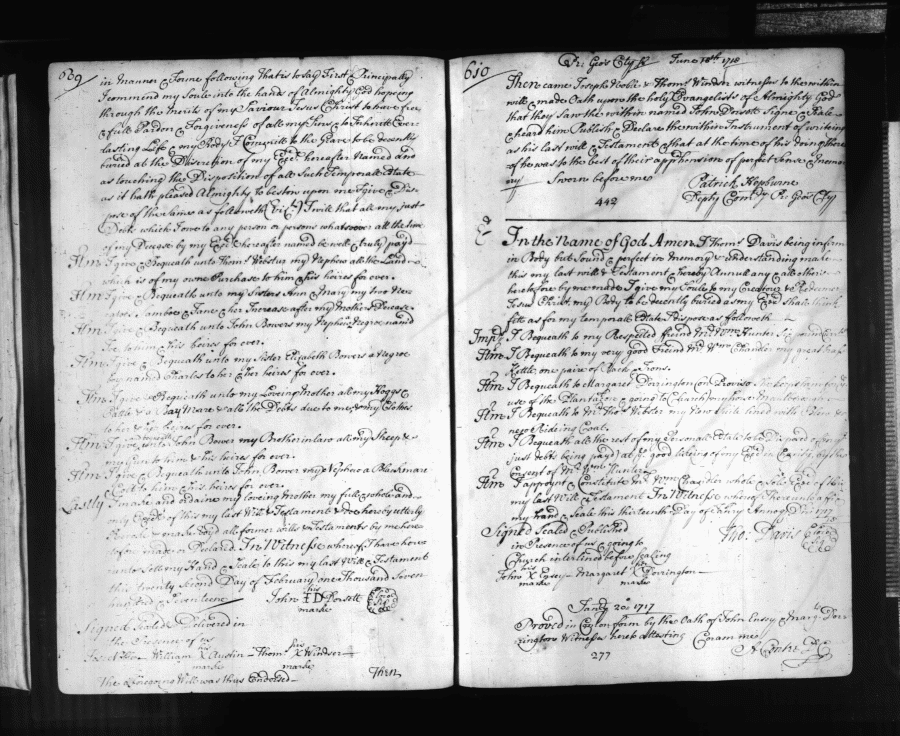 609
in manner & forme following that is to say First & Principally
I commend my Soule into the hands of Almighty God hopeing
through the merits of my Saviour Jesus Christ to have free
& full Pardon & Forgiveness of all my Sins & to Inheritt Ever
lasting Life & my Body I Committ to the Grave to be decently
buried at the Discretion of my Exec.r hereafter Named and
as touching the Disposition of all Such Temporall Estate
as it hath pleased Almighty to bestow upon me I give & Dis
pose of the same as followeth (Viz.t) I will that all my just
Debts which I owe to any person or persons whatsoever all the time
of my Decease by my Exec.r hereafter named be well & truly paid
Itm I give & Bequeath unto Thom.s Webster my Nephew all the Land
which is of my owne Purchase to him & his heires for ever.
Itm I give & Bequeath unto my Sisters Ann & Mary my two Ne
groes Sambo & Jane & her Increase after my Mothers Decease
Itm I give & Bequeath unto John Bowers my Nephew Negroe named
to him & his heires for ever.
Itm I give & Bequeath unto my Sister Elizabeth Bowers a Negroe
boy named Charles to her & her heires for ever.
Itm I give & Bequeath unto my Loveing Mother all my Hoggs
& a Bay Mare & all the Debts due to me & my Clothes
to her & heires for ever.
Itm I give & unto John Bower my Brother in law all my Sheep &
my Gun to him & his heires for ever.
Itm I give & Bequeath unto John Bower my Nephew a Black mare
Colt to him & his heires for ever.
Lastly I make and ordaine my loveing Mother my full & whole and
only Exec.r of this my last Will & Testament & do hereby utterly
Revoake & make void all former wills & Testaments by me here
tofore made or Declared. In Witness whereof I have here
unto Sett my Hand & Seale to this my last Will & Testament
this twenty Second Day of February one Thousand Seven
hundred & Seventeene
his
John I D Dorsett
marke
Signed Sealed & Delivered in
the Presence of us
his his
William X Austin – Thom X Windser –
marke marke
The aforegoing Will was thus Endorsed –
Then
610
Pr: Geo's C'ty June 18th 1718
Then came Joseph & Thom.s Windsor witnesses to the within
will & made Oath upon the holy Evangelists of Almighty God
that they Saw the within named John Dorsett Signe & Seale &
heard him Publish & Declare the within Instrument of writeing
as his last will & Testament & that at the time of his doing thereof
he was to the best of their apprehension of perfect Sense & memo
ry Sworn before me
Patrick Hepburne
Depty Com.ry Pr: Geo's C'ty
442
In the Name of God Amen I Thom.s Davis being infirm
in Body but Sound & perfect in Memory & Understanding make
this my last will & Testament & hereby Annull any & all others
heretofore by me made I give my Soule to my Creatour & Redeemer
Jesus Christ, my Body to be decently buried as my Exec.r shall think
fitt as for my temporall Estate I dispose as followeth
Imp.s I Bequeath to my Respected friend M.r W.m Hunter
Itm I Bequeath to my very good Friend M.r W.m Chandler my great
Kettle, one paire of Rack Irons.
Itm I Bequeath to Margaret Dorrington on Proviso She keep
use of the Plantation
Itm I Bequeath to M.r Tho.s Webster my New Suite lined with
new Rideing Coat.
Itm I Bequeath all the rest of my Personall Estate to be Disposed of
just debts being payd at good likeing of my Exec.r
Consent of M.r W.m Hunter.
Itm I appoynt & Constitute M.r W.m Chandler whole & Sole Exec.r of this
my last Will & Testament In Witness whereof I hereunto affix
my hand & Seale this thirteenth Day of Janry Annoq Dni 1717
Signed Sealed & Published
in Presence of us & going to
Church interlined before sealing
Tho: Davis
his her
John X Casey – Margaret X Dorrington –
marke marke
Janry 20: 1717
Proved in Comon form by the Oath of John Casey & Marg.t Dor
rington Witnesses hereto attesting Coram me
277